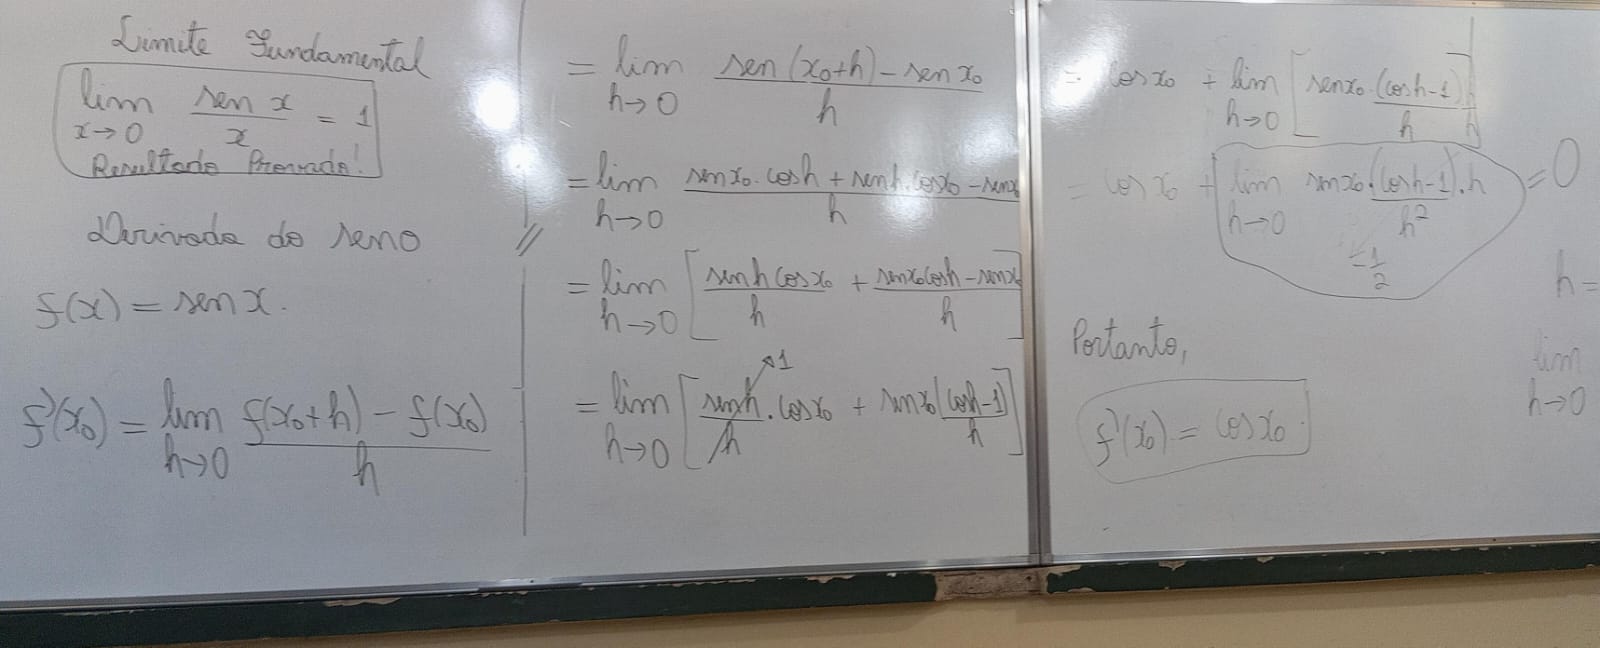 Limite Fundamental
lim x→0 sen x / x = 1
Resultado Provado!
Derivada do seno
f(x) = sen x.
f'(x₀) = lim h→0 f(x₀+h) − f(x₀) / h
= lim h→0 sen (x₀+h) − sen x₀ / h
= lim h→0 senx₀. cosh + senh.cosx₀ − senx₀ / h
= lim h→0 [ senh cosx₀ / h + senx₀cosh − senx₀ / h ]
= lim h→0 [ senh / h . cosx₀ + senx₀(cosh−1) / h ]
1
= cos x₀ + lim h→0 [ senx₀.(cosh−1) / h ] . h / h
= cos x₀ + lim h→0 senx₀.(cosh−1).h / h² = 0
−1/2
Portanto,
f'(x₀) = cosx₀.
h =
lim h→0